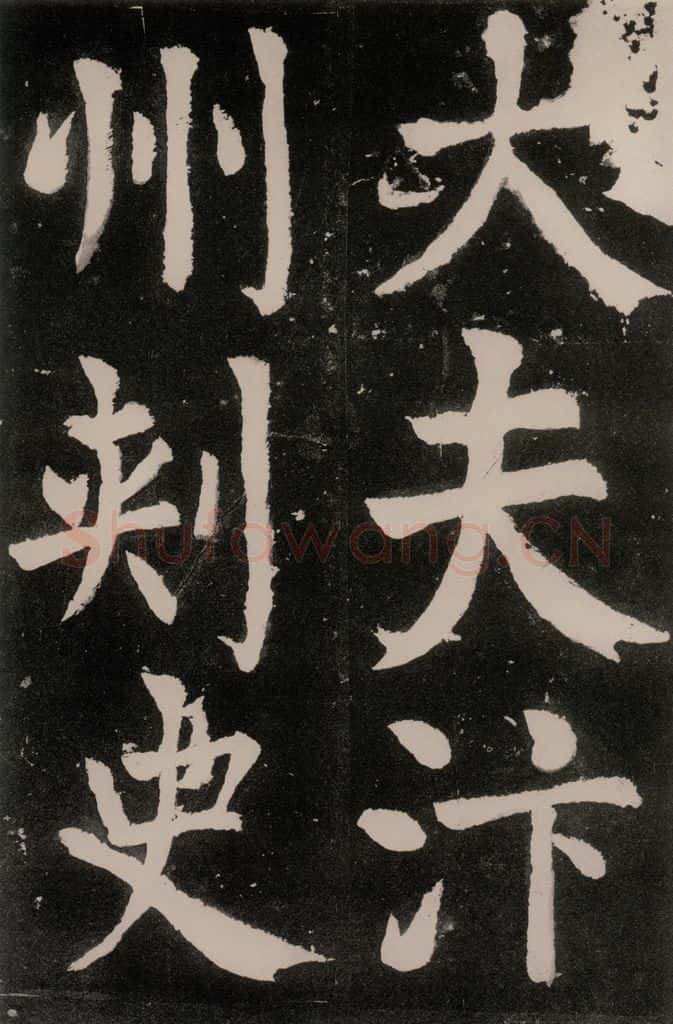 大夫汴
州刺史
Shufawang.CN